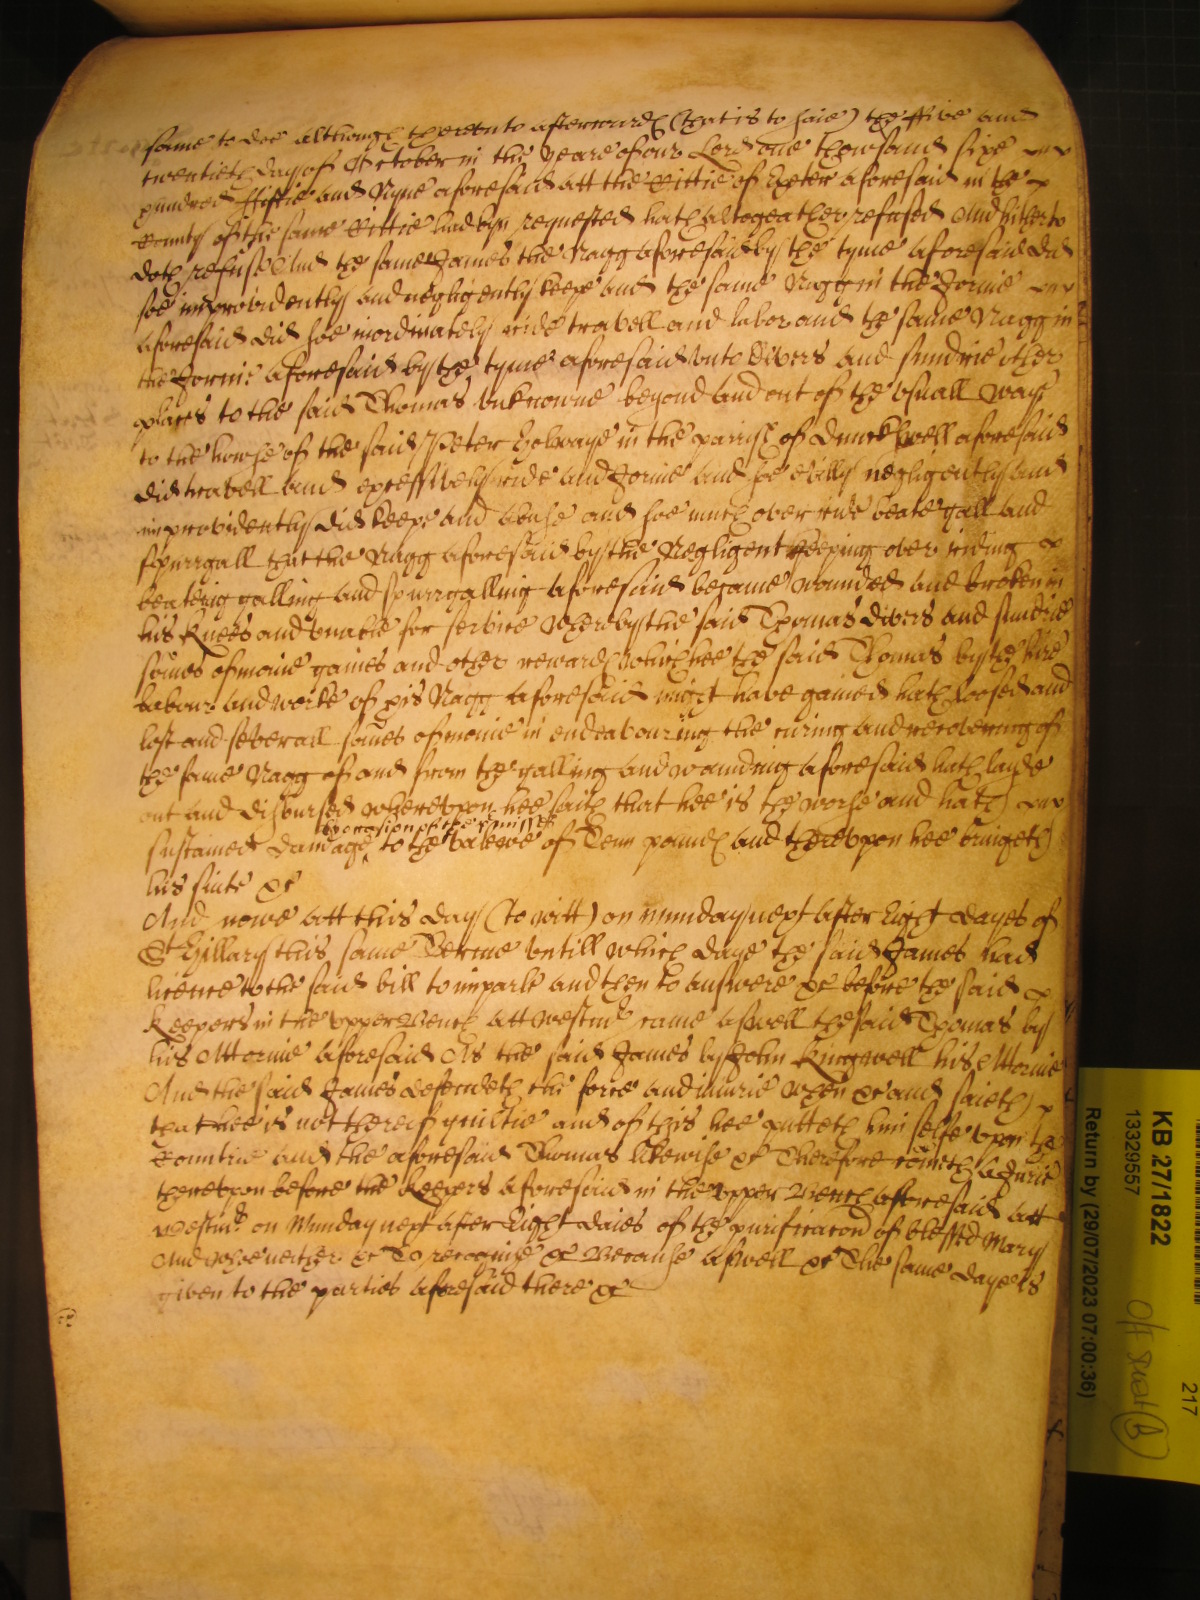 same to doe although thereunto afterwards (that is to saie) the ffive and
twentieth day of October in the yeare of our Lord one thowsand sixe
hundred ffiftie and Nyne aforesaid att the Cittie of Exeter aforesaid in the
County of the same Cittie had byn requested hath altogeather refused And hitherto
doth refuse And the same James the Nagg aforesaid by the tyme aforesaid did
soe improvidently and negligently keepe and the same Nagg in the Jornie
aforesaid did soe inordinately ride travell and labor and the same Nagg in
the Jornie aforesaid by the tyme aforesaid unto divers and sundrie other
places to the said Thomas unknowne beyond and out of the usuall way
to the howse of the said Peter Holwaye in the parish of Dunckswell aforesaid
did travell and excessively ride and Jornie and soe evilly negligently and
improvidently did keepe and abuse and soe much over ride beate gall and
spurrgall that the Nagg aforesaid by the Negligent keeping over riding
beateing galling and spurrgalling aforesaid became wounded and broken in
his Knees and unable for service whereby the said Thomas divers and sundrie
somes of monie gaines and other rewards which hee the said Thomas by the hire
labour and worke of his Nagg aforesaid might have gained hath loosed and
lost and severall somes of monie in endeavouring the curing and recovering of
the same Nagg of and from the galling and wounding aforesaid hath laide
out and disbursed whereupon hee saith that hee is the worse and hath
by occasion of the premisses
sustained damage to the valewe of Tenn pounds and thereupon hee bringeth
his suite &c
And nowe att this day (to witt) on munday next after Eight dayes of
St Hillary this same Terme untill which daye the said James had
licence to the said bill to imparle and then to answere &c before the said
Keepers in the upper Bench att Westmr came aswell the said Thomas by
his Attornie aforesaid As the said James by John Kingwell his Attornie
And the said James defendeth the force and iniurie when &c and saieth
that hee is not thereof guiltie and of this hee putteth himselfe upon the
Countrie and the aforesaid Thomas likewise &c Therefore cometh a Jurie
thereupon before the Keepers aforesaid in the upper Bench aforesaid att
Westmr on Munday next after Eight daies of the purificacon of blessed Mary
And whoe neither &c To recognise &c Because aswell &c The same day is
given to the parties aforesaid there &c
KB 27/1822
13329557
Return by (29/07/2023 07:00:36)
217